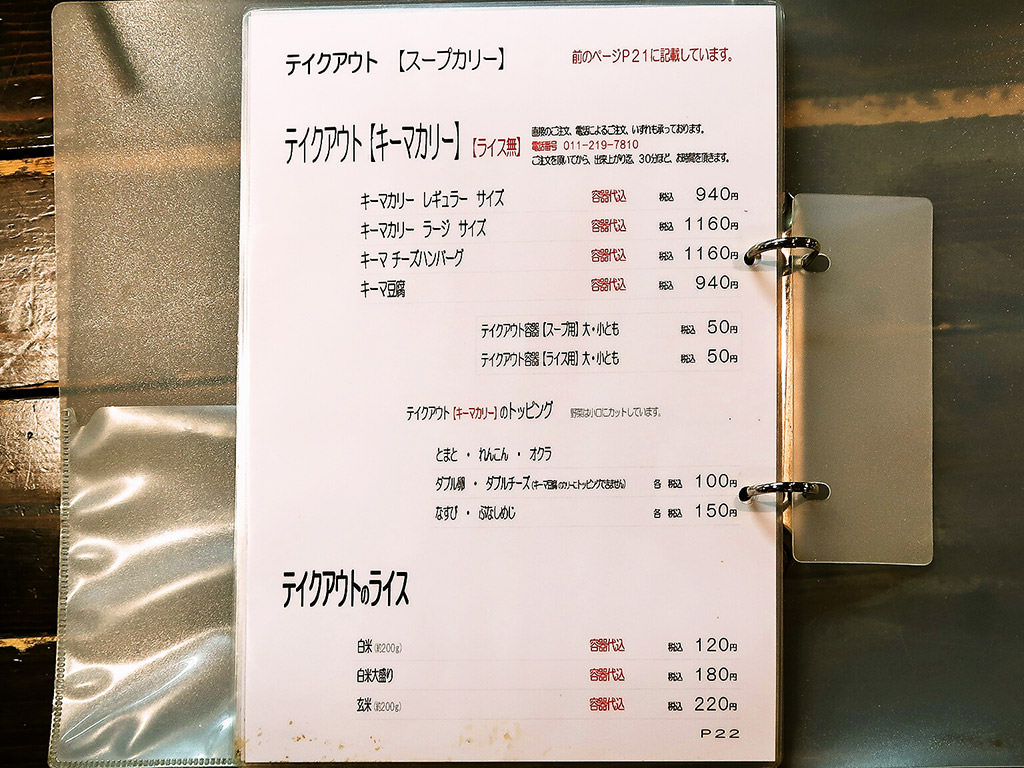 テイクアウト 【スープカリー】 前のページP21に記載しています。
テイクアウト【キーマカリー】【ライス無】
直接のご注文、電話によるご注文、いずれも承っております。
電話番号 011-219-7810
ご注文を頂いてから、出来上がり迄、30分ほど、お時間を頂きます。
キーマカリー レギュラー サイズ 容器代込 税込 940円
キーマカリー ラージ サイズ 容器代込 税込 1160円
キーマ チーズハンバーグ 容器代込 税込 1160円
キーマ豆腐 容器代込 税込 940円
テイクアウト容器【スープ用】大・小とも 税込 50円
テイクアウト容器【ライス用】大・小とも 税込 50円
テイクアウト【キーマカリー】のトッピング 野菜は小口にカットしています。
とまと ・ れんこん ・ オクラ
ダブル卵 ・ ダブルチーズ(キーマ豆腐カリーにトッピングできません) 各 税込 100円
なすび ・ ぶなしめじ 各 税込 150円
テイクアウトのライス
白米(約200g) 容器代込 税込 120円
白米大盛り 容器代込 税込 180円
玄米(約200g) 容器代込 税込 220円
P22